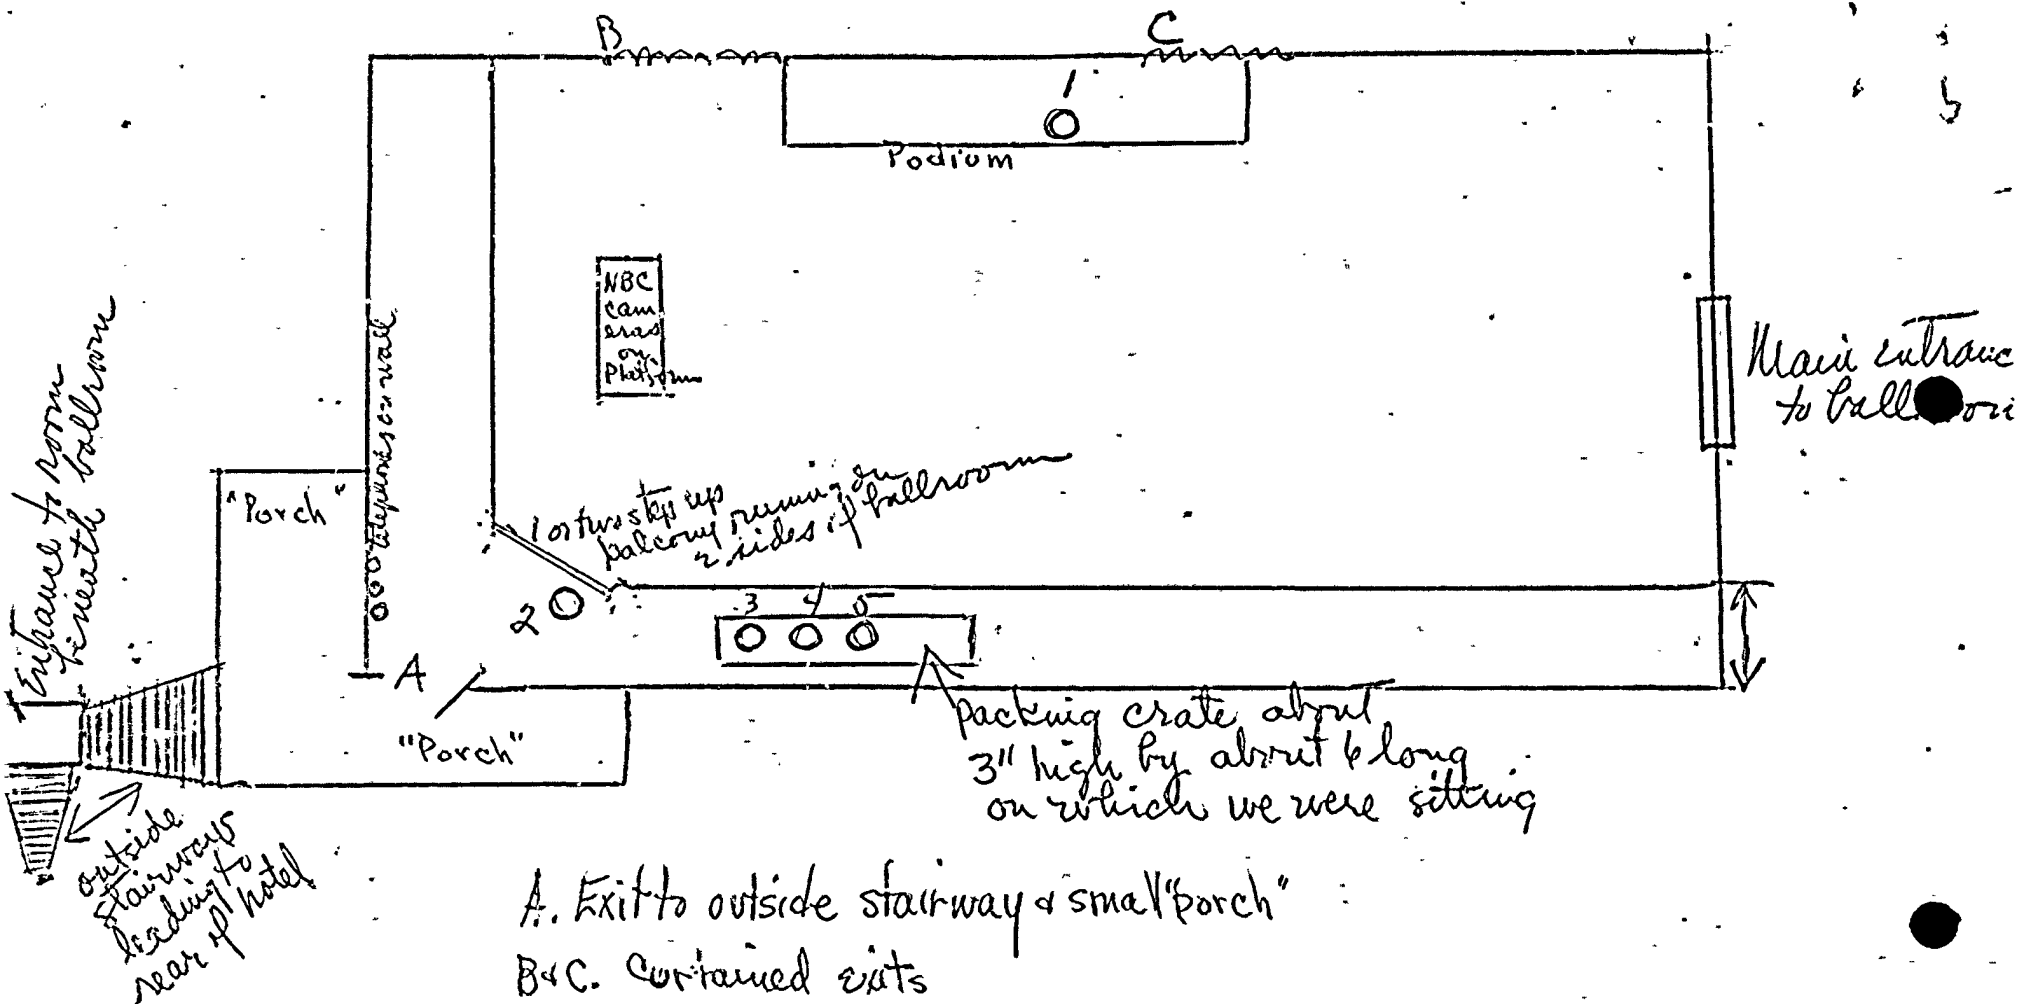 B
C
1
Podium
NBC
cam
eras
on
Platform
telephones on wall
Main entranc
to ball
Entrance to room
beneath ballroom
"Porch"
1 or two steps up
balcony running on
2 sides of ballroom
2
3 4 5
A
"Porch"
packing crate about
3" high by about 6 long
on which we were sitting
outside
stairways
leading to
rear of hotel
A. Exit to outside stairway & small "porch"
B&C. Curtained exits